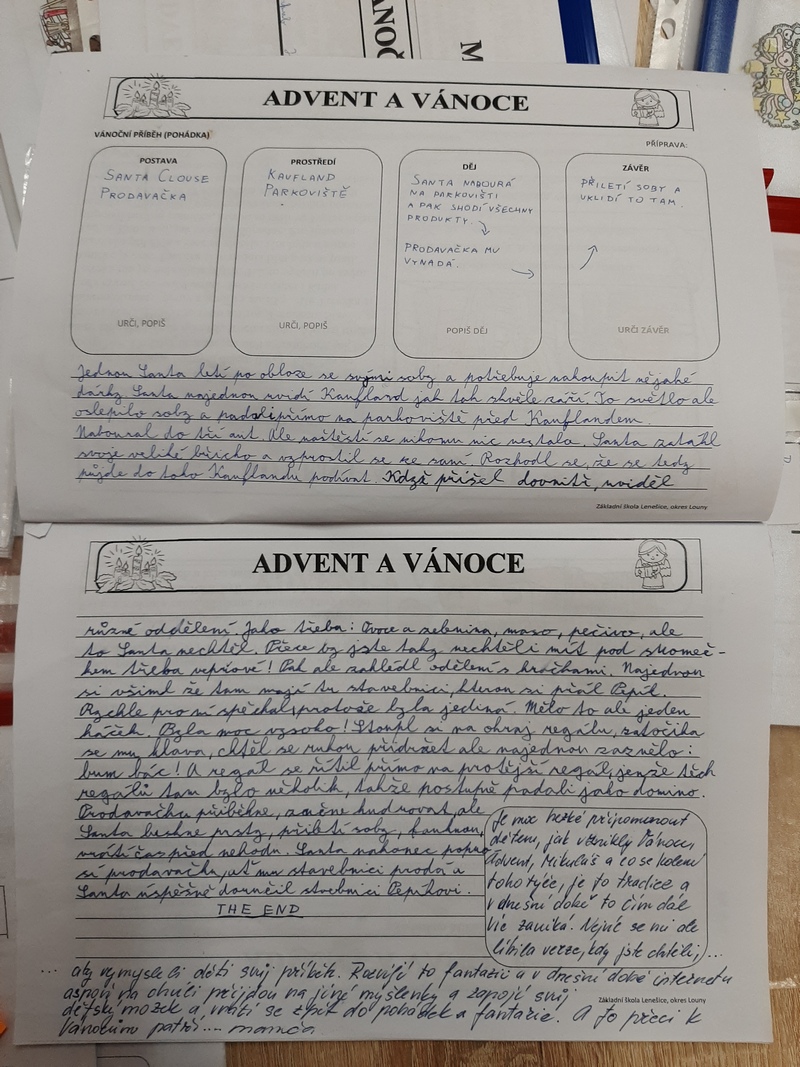 ADVENT A VÁNOCE
VÁNOČNÍ PŘÍBĚH (POHÁDKA)
PŘÍPRAVA:
POSTAVA
SANTA CLOUSE
PRODAVAČKA
URČI, POPIŠ
PROSTŘEDÍ
KAUFLAND
PARKOVIŠTĚ
URČI, POPIŠ
DĚJ
SANTA NABOURÁ
NA PARKOVIŠTI
A PAK SHODÍ VŠECHNY
PRODUKTY.
PRODAVAČKA MU
VYNADÁ.
POPIŠ DĚJ
ZÁVĚR
PŘILETÍ SOBY A
UKLIDÍ TO TAM.
URČI ZÁVĚR
Jednou Santa letí po obloze se svými soby a potřebuje nakoupit nějaké
dárky. Santa najednou uvidí Kaufland jak tak skvěle září. To světlo ale
oslepilo soby a padali přímo na parkoviště před Kauflandem.
Naboural do tří aut. Ale naštěstí se nikomu nic nestalo. Santa zatáhl
svoje veliké břicho a vyprostil se ze saní. Rozhodl se, že se tedy
půjde do toho Kauflandu podívat. Když přišel dovnitř, uviděl
Základní škola Lenešice, okres Louny
ADVENT A VÁNOCE
různé oddělení. Jako třeba: Ovoce a zelenina, maso, pečivo, ale
to Santa nechtěl. Přece by jste taky nechtěli mít pod stromeč-
kem třeba vepřové! Pak ale zahlédl odělení s hračkami. Najednou
si všiml že tam mají tu stavebnici, kterou si přál Pepík.
Rychle pro ní spěchal, protože byla jediná. Mělo to ale jeden
háček. Byla moc vysoko! Stoupl si na okraj regálu, zatočila
se mu hlava, chtěl se rukou přidržet ale najednou zaznělo:
bum bác! A regál se řítil přímo na protější regál, jenže těch
regálů tam bylo několik, takže postupně padali jako domino.
Prodavačka přiběhne, začne hudrovat, ale
Santa luskne prsty, přiletí soby, kouknou,
vrátí čas před nehodu. Santa nakonec popro
si prodavačku, ať mu stavebnici prodá a
Santa úspěšně doručil stvebnici Pepíkovi.
THE END
Je moc hezké připomenout
dětem, jak vznikly Vánoce,
Advent, Mikuláš a co se kolem
toho týče, je to tradice a
v dnešní době to čím dál
víc zaniká. Nejvíc se mi ale
líbila verze, kdy jste chtěli, ...
... aby vymysleli děti svůj příběh. Rozvíjí to fantazii a v dnešní době internetu
aspoň na chvíli přejdou na jiné myšlenky a zapojí svůj
dětský mozek a vrátí se zpět do pohádek a fantazie. A to přeci k
Vánocům patří.... mamča
Základní škola Lenešice, okres Louny